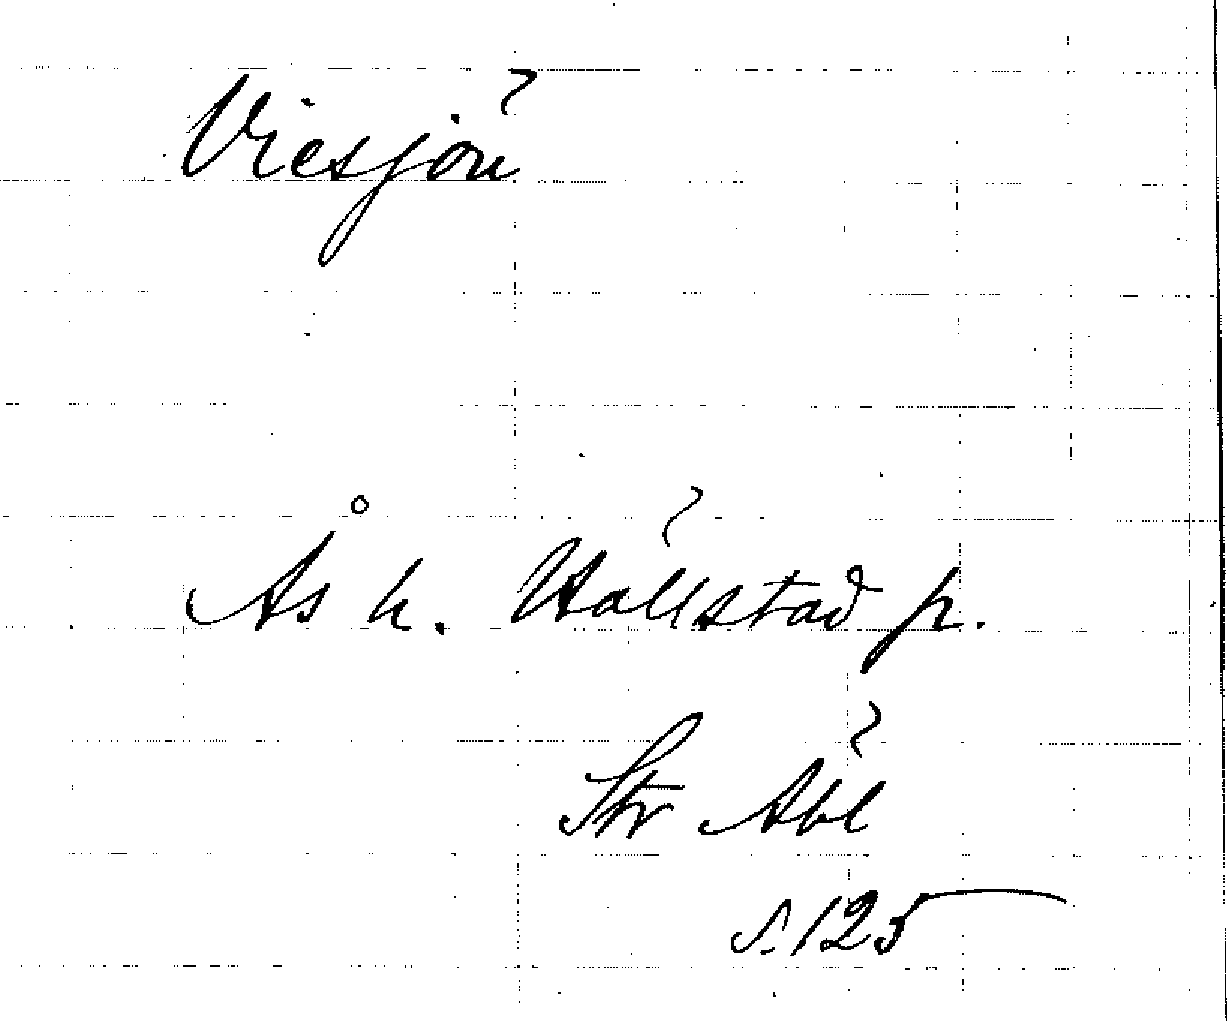 Viesjön
Ås h. Hällstad p.
Str Äbl
s. 125